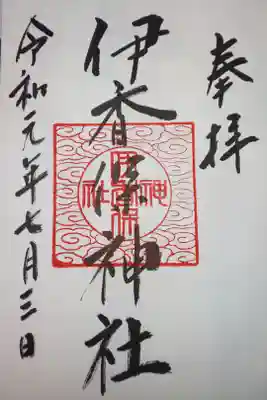 奉拝
伊香保神社
伊香保神社
令和元年七月三日